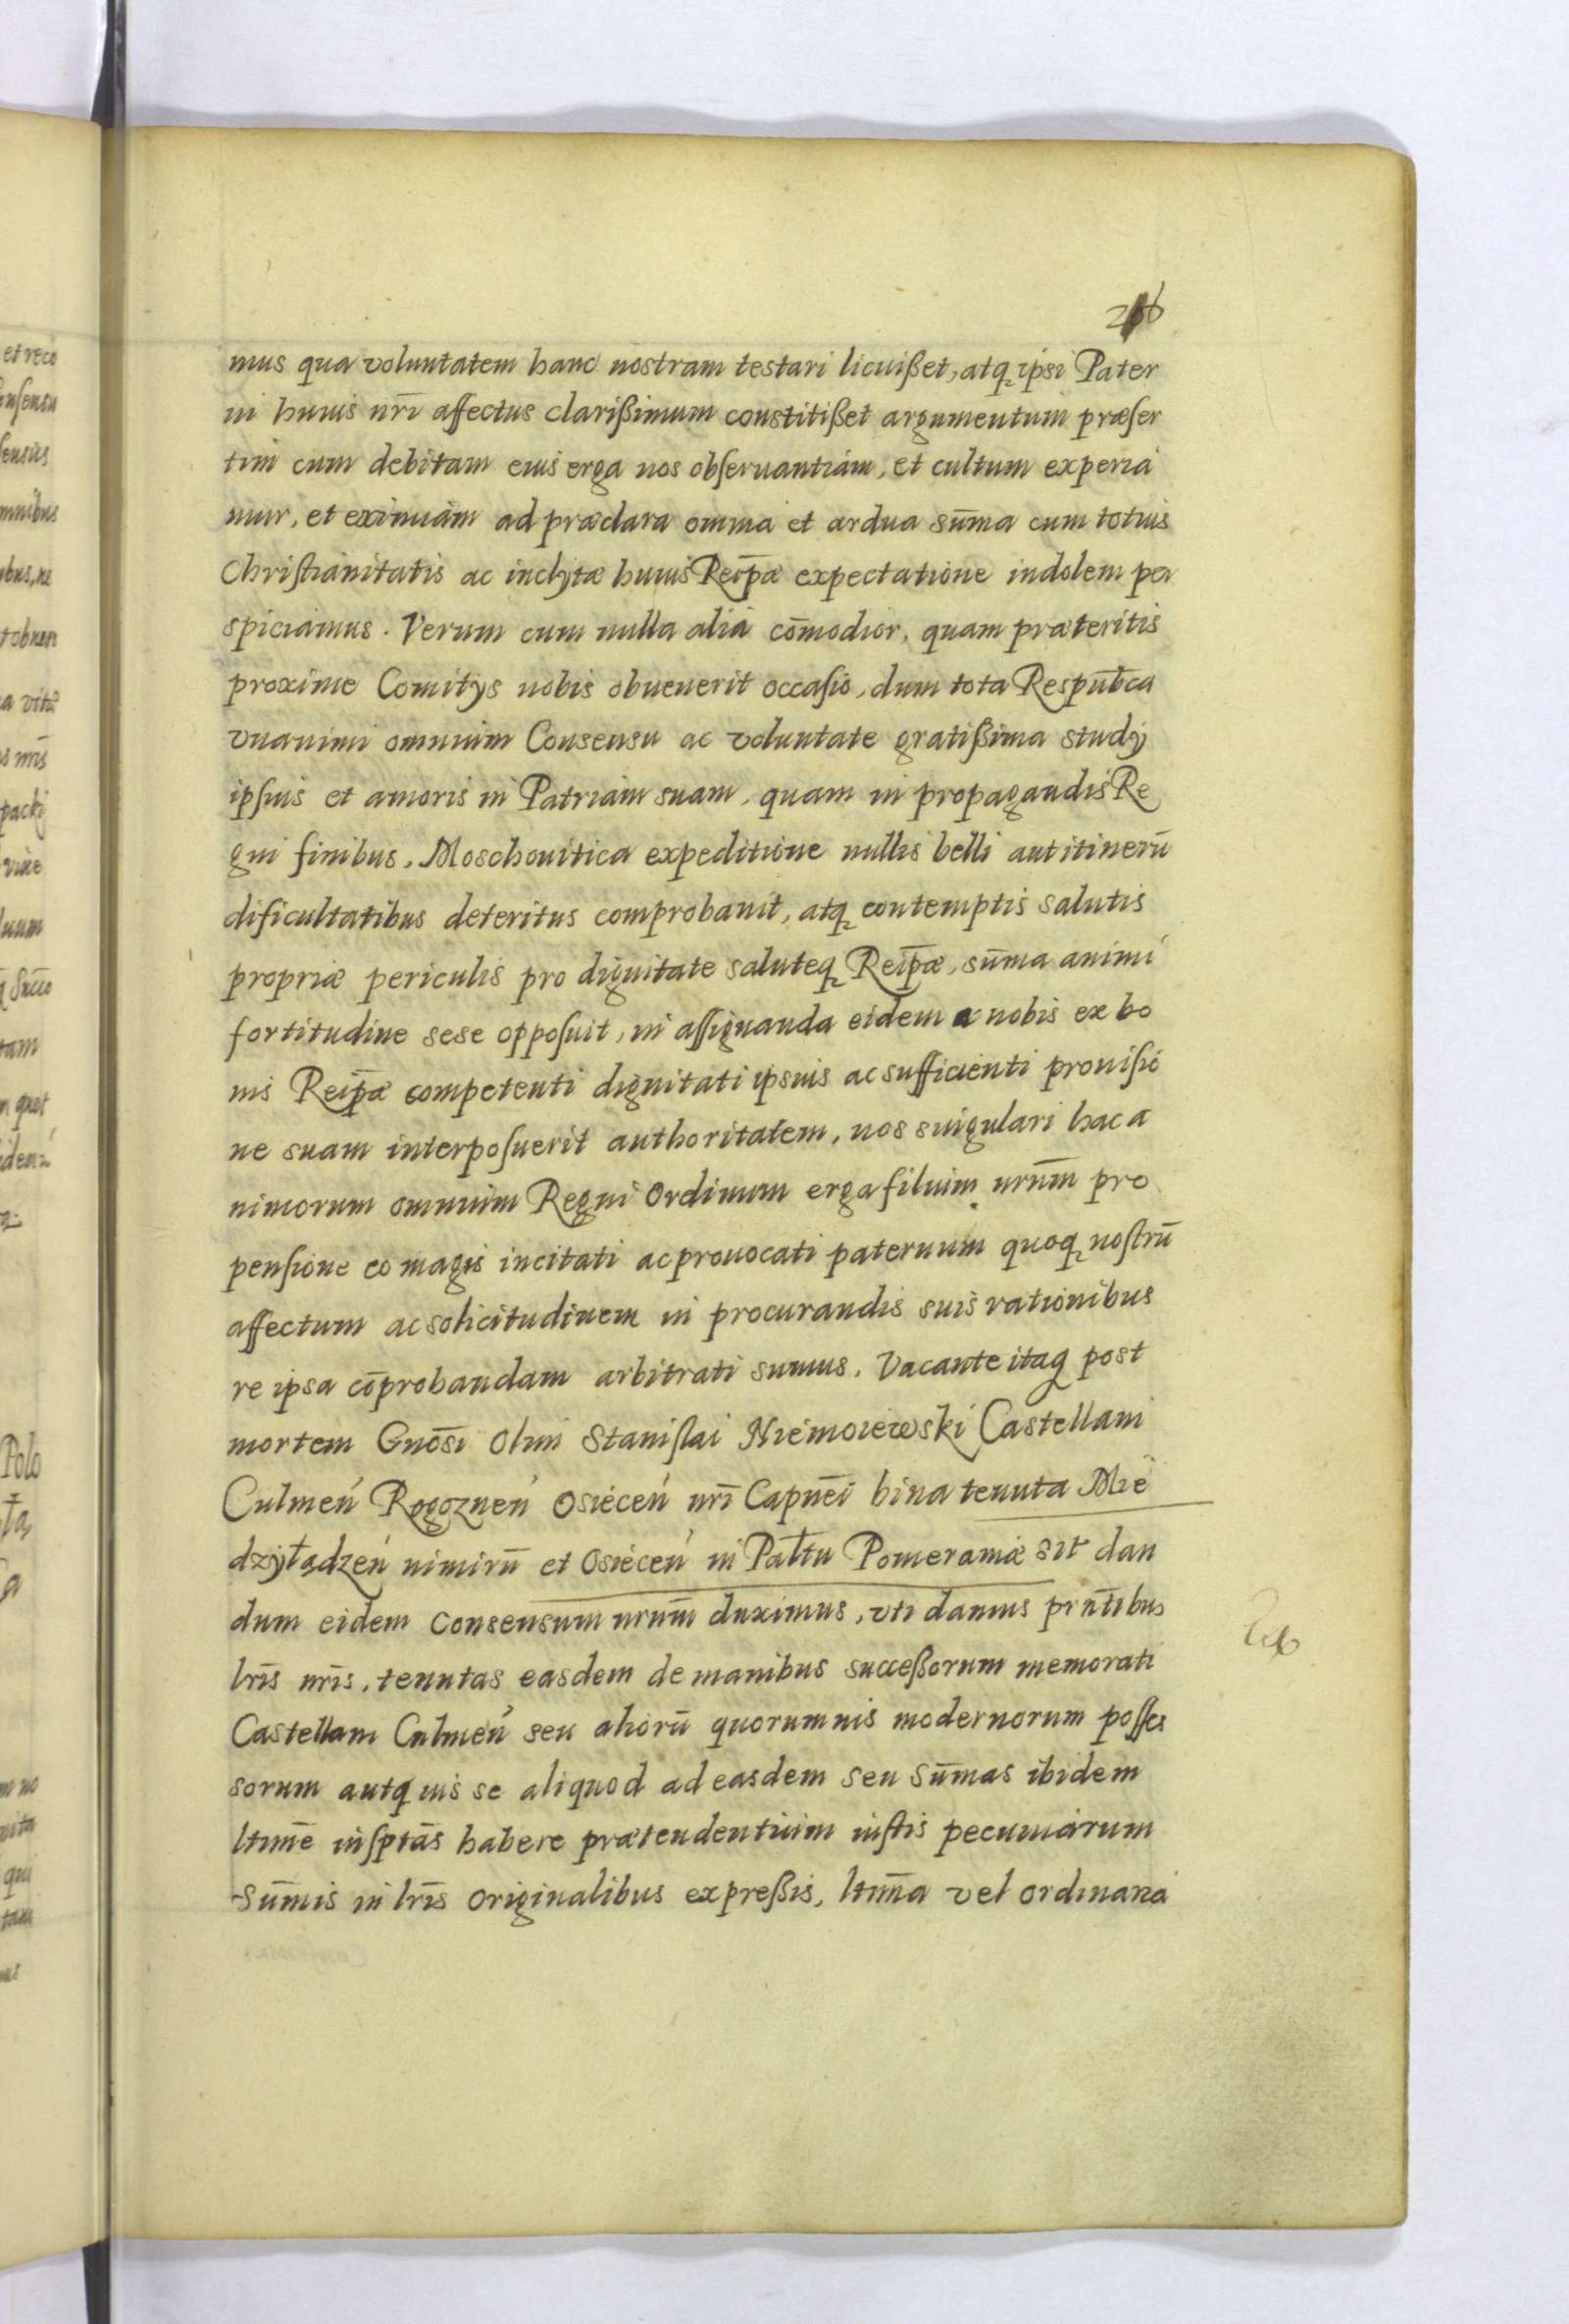 mus qua voluntatem hanc nostram testari licuißet, atq ipsi Pater
ni huius nrī affectus clarißimum constitißet argumentum præser
tim cum debitam eius erga nos obseruantiam, et cultum experia
mur, et eximiam ad præclara omnia et ardua sūma cum totius
Christianitatis ac inclytæ huius Reipæ expectatione indolem per
spiciamus. Verum cum nulla alia cōmodior, quam præteritis
proxime Comitys nobis obuenerit occasio, dum tota Respublca
vnanimi omnium Consensu ac voluntate gratißima study
ipsius et amoris in Patriam suam, quam in propagandis Re
gni finibus, Moschouitica expeditione nullis belli aut itinerū
dificultatibus deteritus comprobauit, atq contemptis salutis
propriæ periculis pro dignitate saluteq Reipæ, sūma animi
fortitudine sese opposuit, in assignanda eidem a nobis ex bo
nis Reipæ competenti dignitati ipsius ac sufficienti prouisio
ne suam interposuerit authoritatem, nos singulari hac a
nimorum omnium Regni Ordinum erga filium nrum̄ pro
pensione eo magis incitati ac prouocati paternum quoq nostrū
affectum ac solicitudinem in procurandis suis rationibus
re ipsa cōprobandam arbitrati sumus. Vacante itaq post
mortem Gnōsi olim Stanislai Niemoiewski Castellani
Culmeń Rogozneń Osieceń nrī Capnēi bina tenuta Mie
dzyłądzeń nimirū et Osieceń in Pałtu Pomeraniæ sit dan
dum eidem consensum nrum̄ duximus, vti damus prńtibus
lrīs nrīs, tenutas easdem de manibus succeßorum memorati
Castellani Culmeń seu aliorū quorumuis modernorum posses
sorum aut quis se aliquod ad easdem seu Sūmas ibidem
ltimē insptās habere prætendentium iustis pecuniarum
Sūmis in lrīs originalibus expreßis, ltimā vel ordinaria